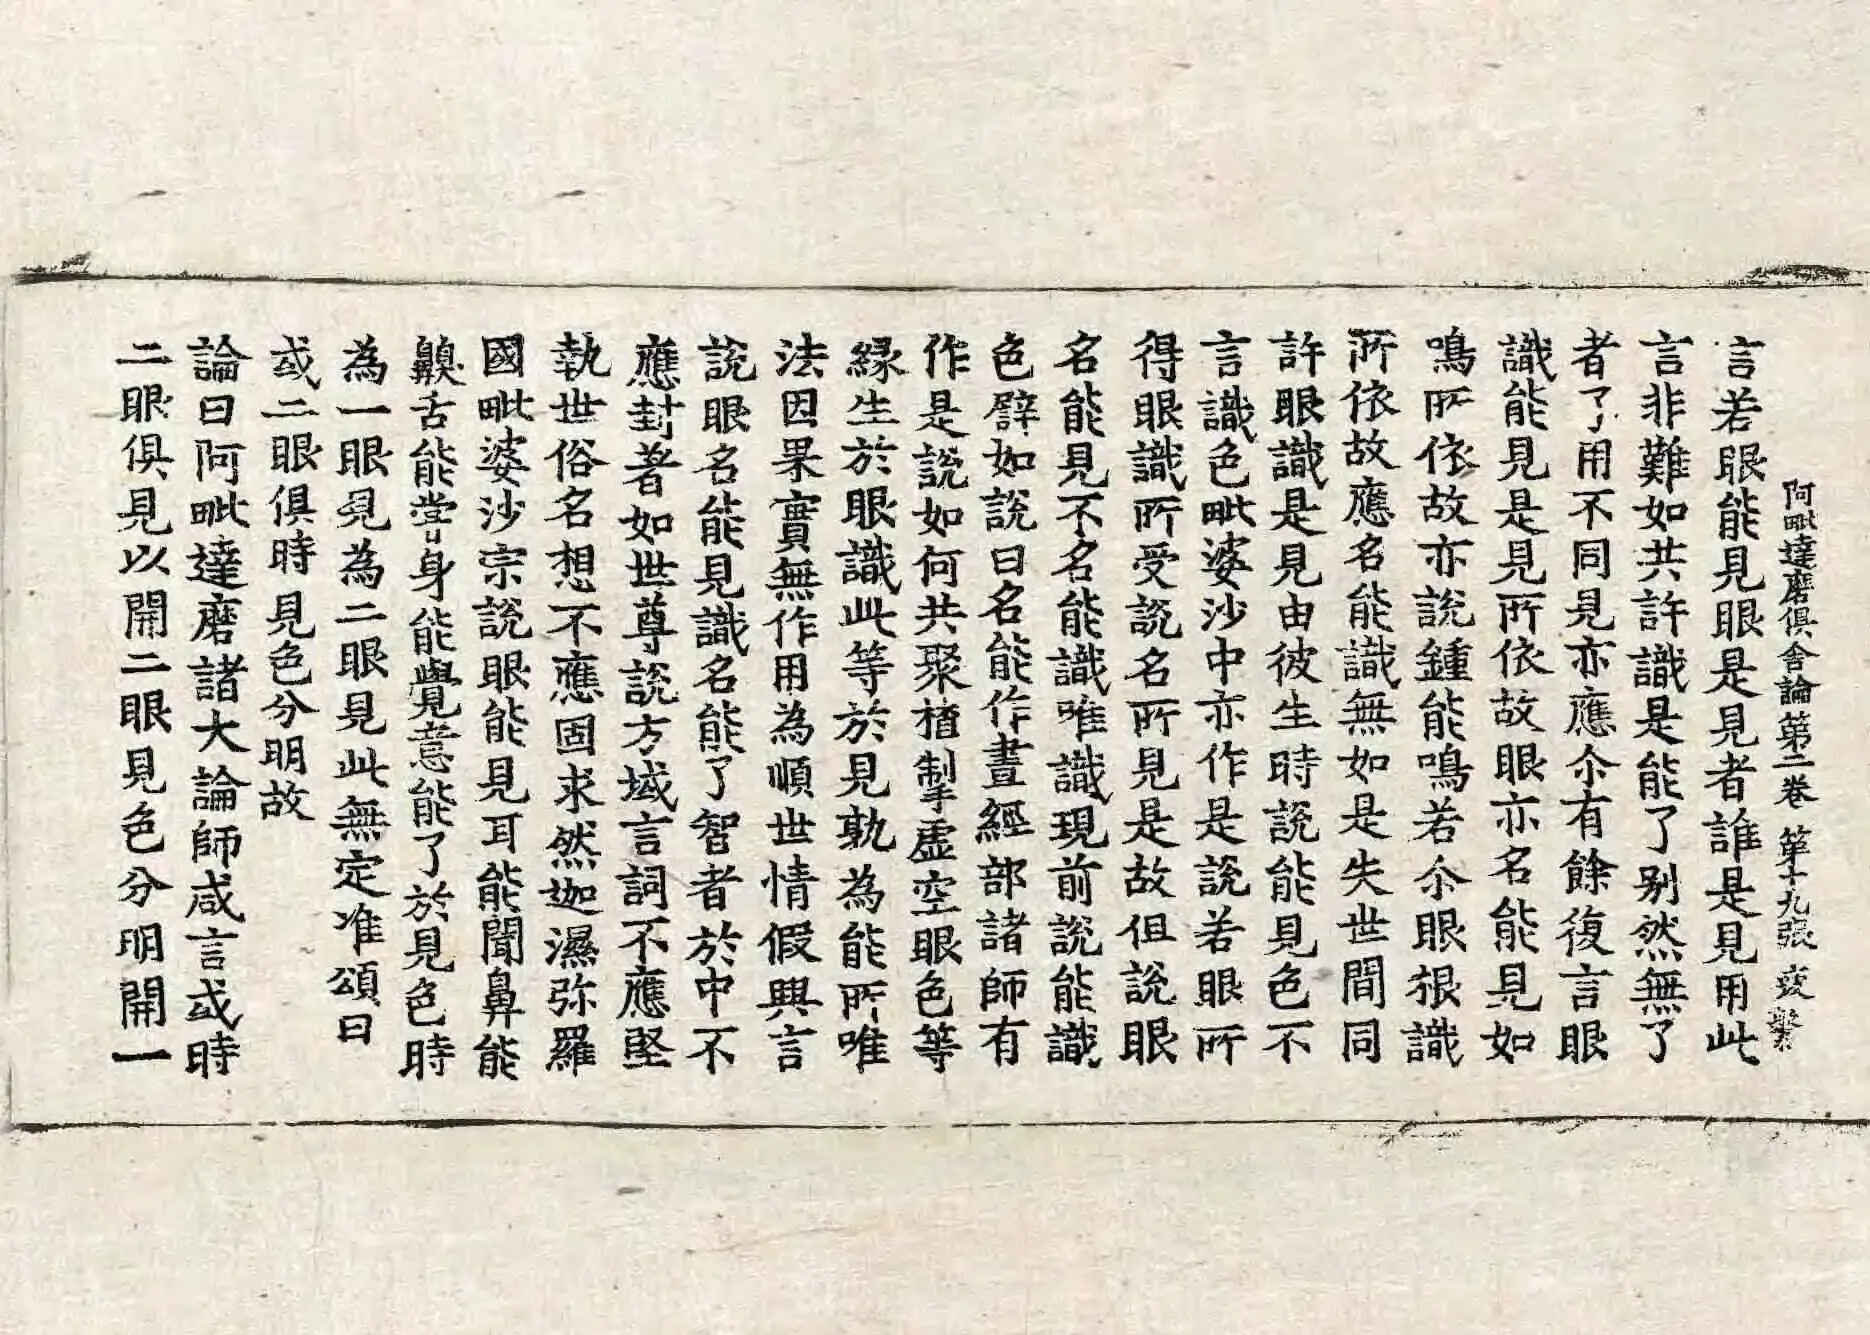 阿毗達磨俱舍論第二卷 第十九張 疲 繫
言若眼能見眼是見者誰是見用此
言非難如共許識是能了別然無了
者了用不同見亦應尒有餘復言眼
識能見是見所依故眼亦名能見如
鳴所依故亦說鍾能鳴若尒眼根識
所依故應名能識無如是失世間同
許眼識是見由彼生時說能見色不
言識色毗婆沙中亦作是說若眼所
得眼識所受說名所見是故但說眼
名能見不名能識唯識現前說能識
色譬如說日名能作晝經部諸師有
作是說如何共聚楂掣虛空眼色等
緣生於眼識此等於見孰為能所唯
法因果實無作用為順世情假興言
說眼名能見識名能了智者於中不
應封著如世尊說方域言詞不應堅
執世俗名想不應固求然迦濕弥羅
國毗婆沙宗說眼能見耳能聞鼻能
齅舌能甞身能覺意能了於見色時
為一眼見為二眼見此無定准頌曰
或二眼俱時見色分明故
論曰阿毗達磨諸大論師咸言或時
二眼俱見以開二眼見色分明開一